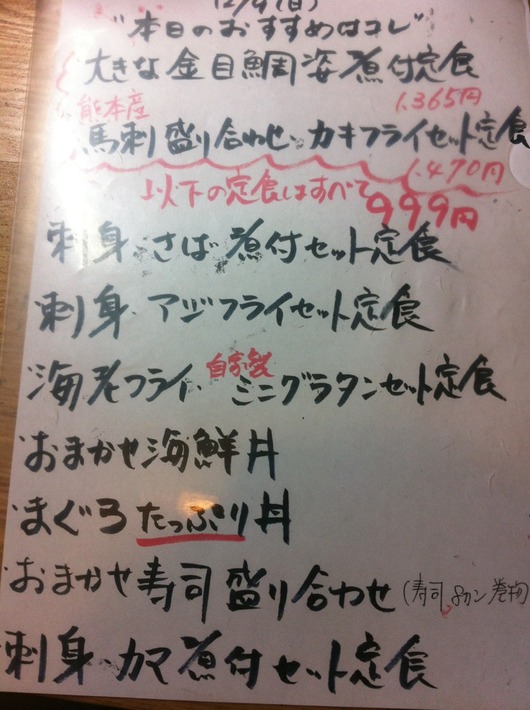 12/9(日)
"本日のおすすめはコレ"
大きな金目鯛姿煮付定食
1.365円
熊本産
馬刺盛り合わせ・カキフライセット定食
1.470円
以下の定食はすべて999円
刺身・さば煮付セット定食
刺身・アジフライセット定食
海老フライ・自家製ミニグラタンセット定食
おまかせ海鮮丼
まぐろたっぷり丼
おまかせ寿司盛り合わせ(寿司8カン巻物)
刺身・カマ煮付セット定食